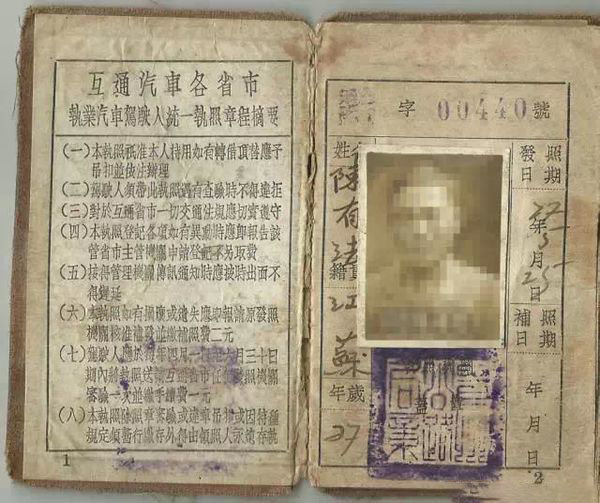 互通汽車各省市
執業汽車駕駛人統一執照章程摘要
(一)本執照祇准本人持用如有轉借頂替應予
吊扣並依法辦理
(二)駕駛人須帶此執照遇有查驗時不得違拒
(三)對於互通省市一切交通法規應切實遵守
(四)本執照登記各項如有異動時應即報告該
管省市主管機關申請登記不另取費
(五)接得管理機關傳訊通知時應按時出面不
得延
(六)本執照如有損壞或遺失應即報請原發照
機關核准補發並繳補照費二元
(七)駕駛人應於每年四月一日至六月三十日
期內將執照送請互通省市任何發照機關
審驗一次並繳手續費一元
(八)本執照除照章審驗或違章吊扣或因特種
規定須暫行繳存外得由領照人永遠存執
1
字 00440 號
姓名
陳有
籍貫
江蘇
年歲
27
發照日期
27年5月25日
補照日期
年 月 日
2